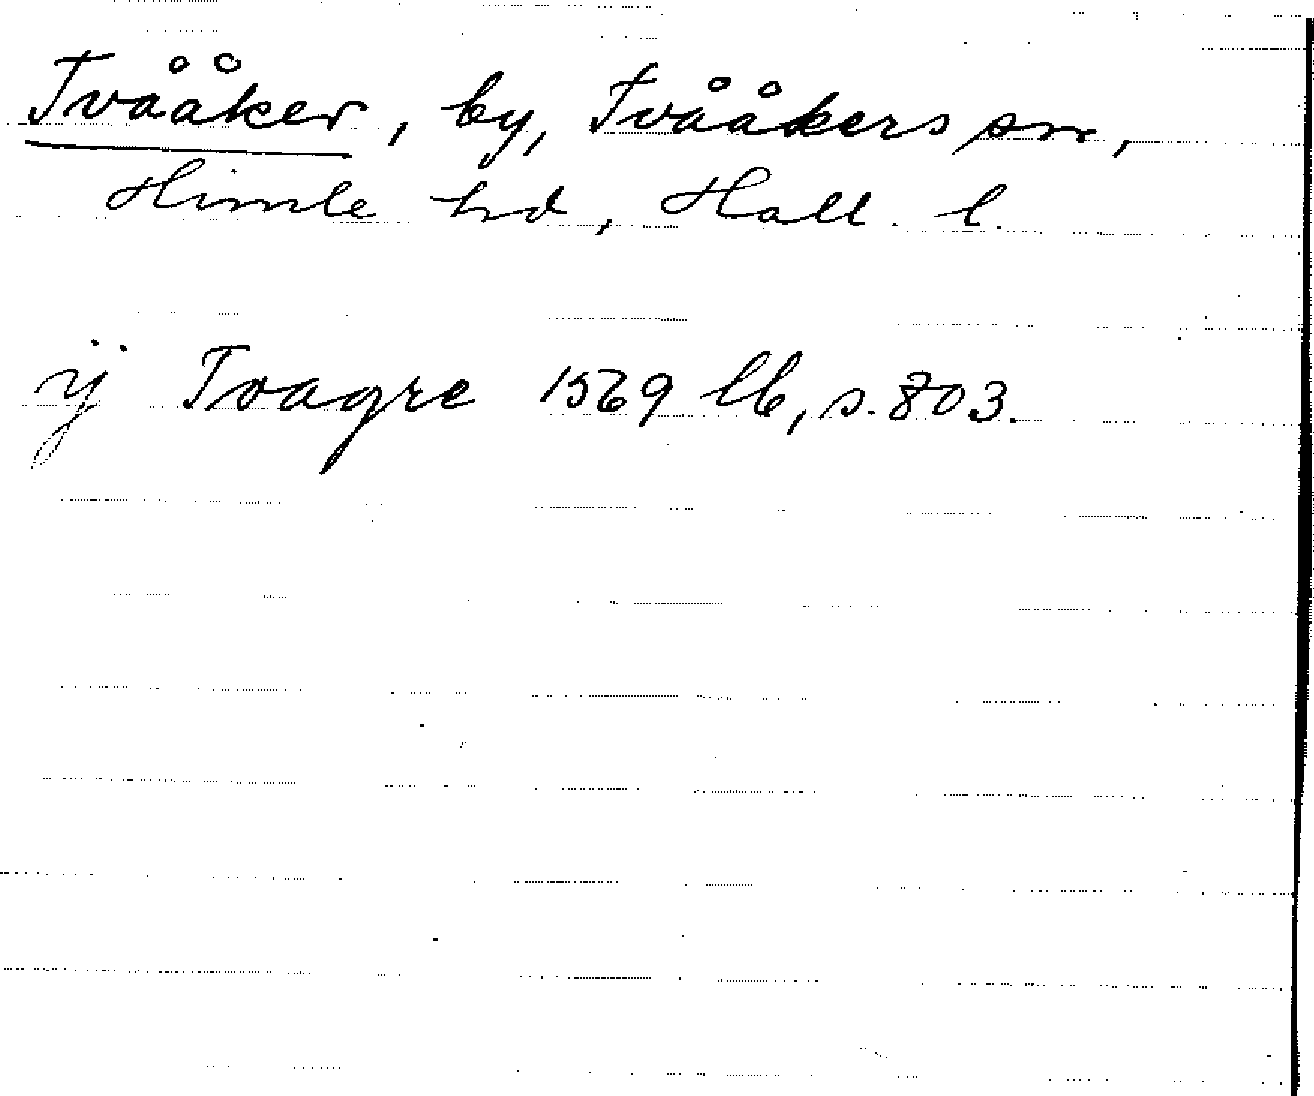 Tvååker, by, Tvååkers sn,
Himle hd, Hall. l.
ÿ Tvagre 1569 lb, s. 803.